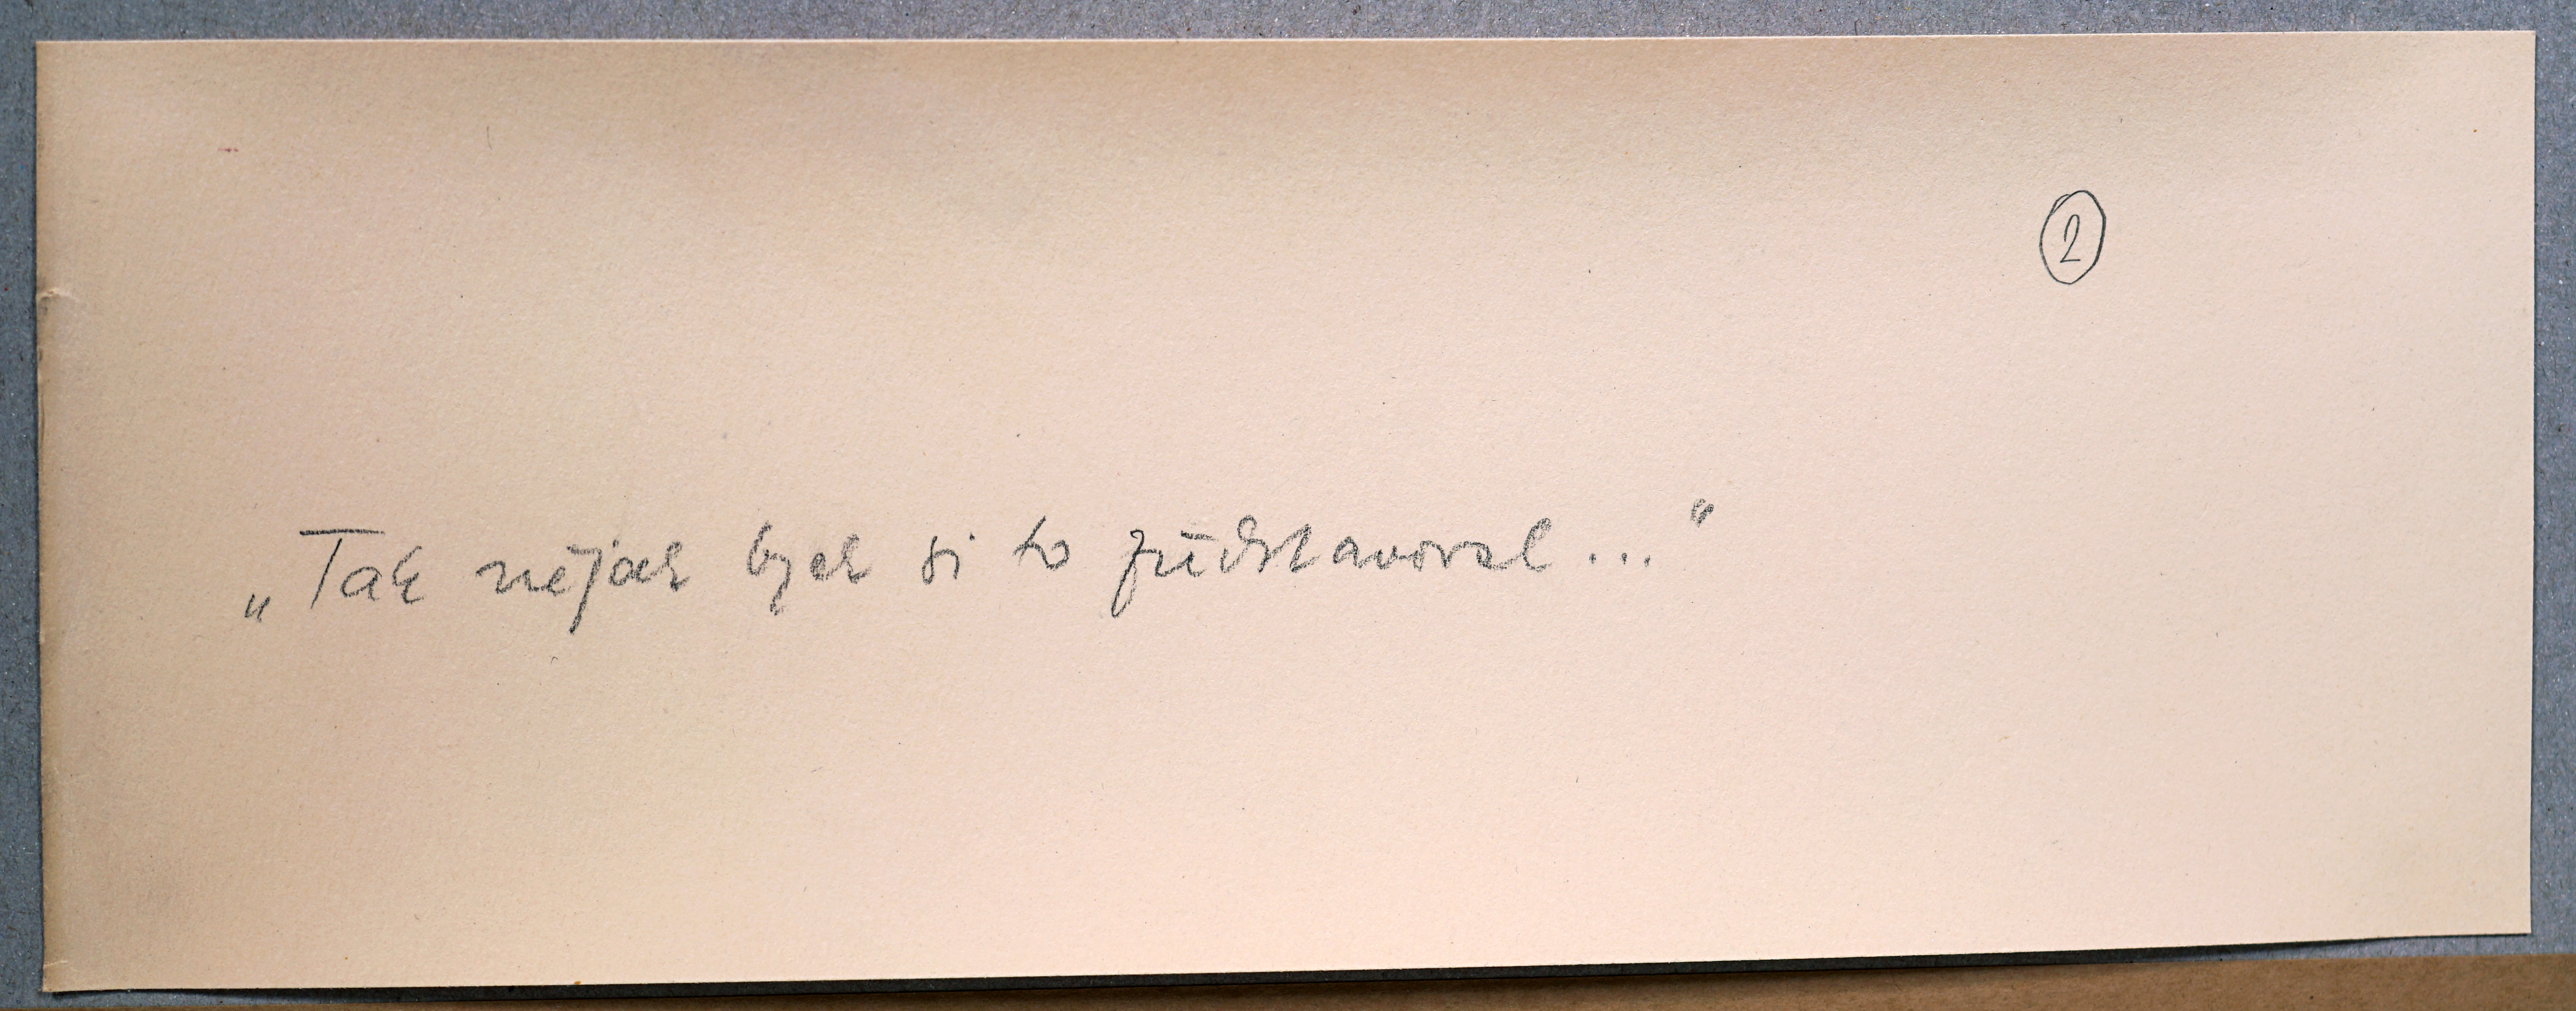 2
„Tak nějak bych si to představoval..."